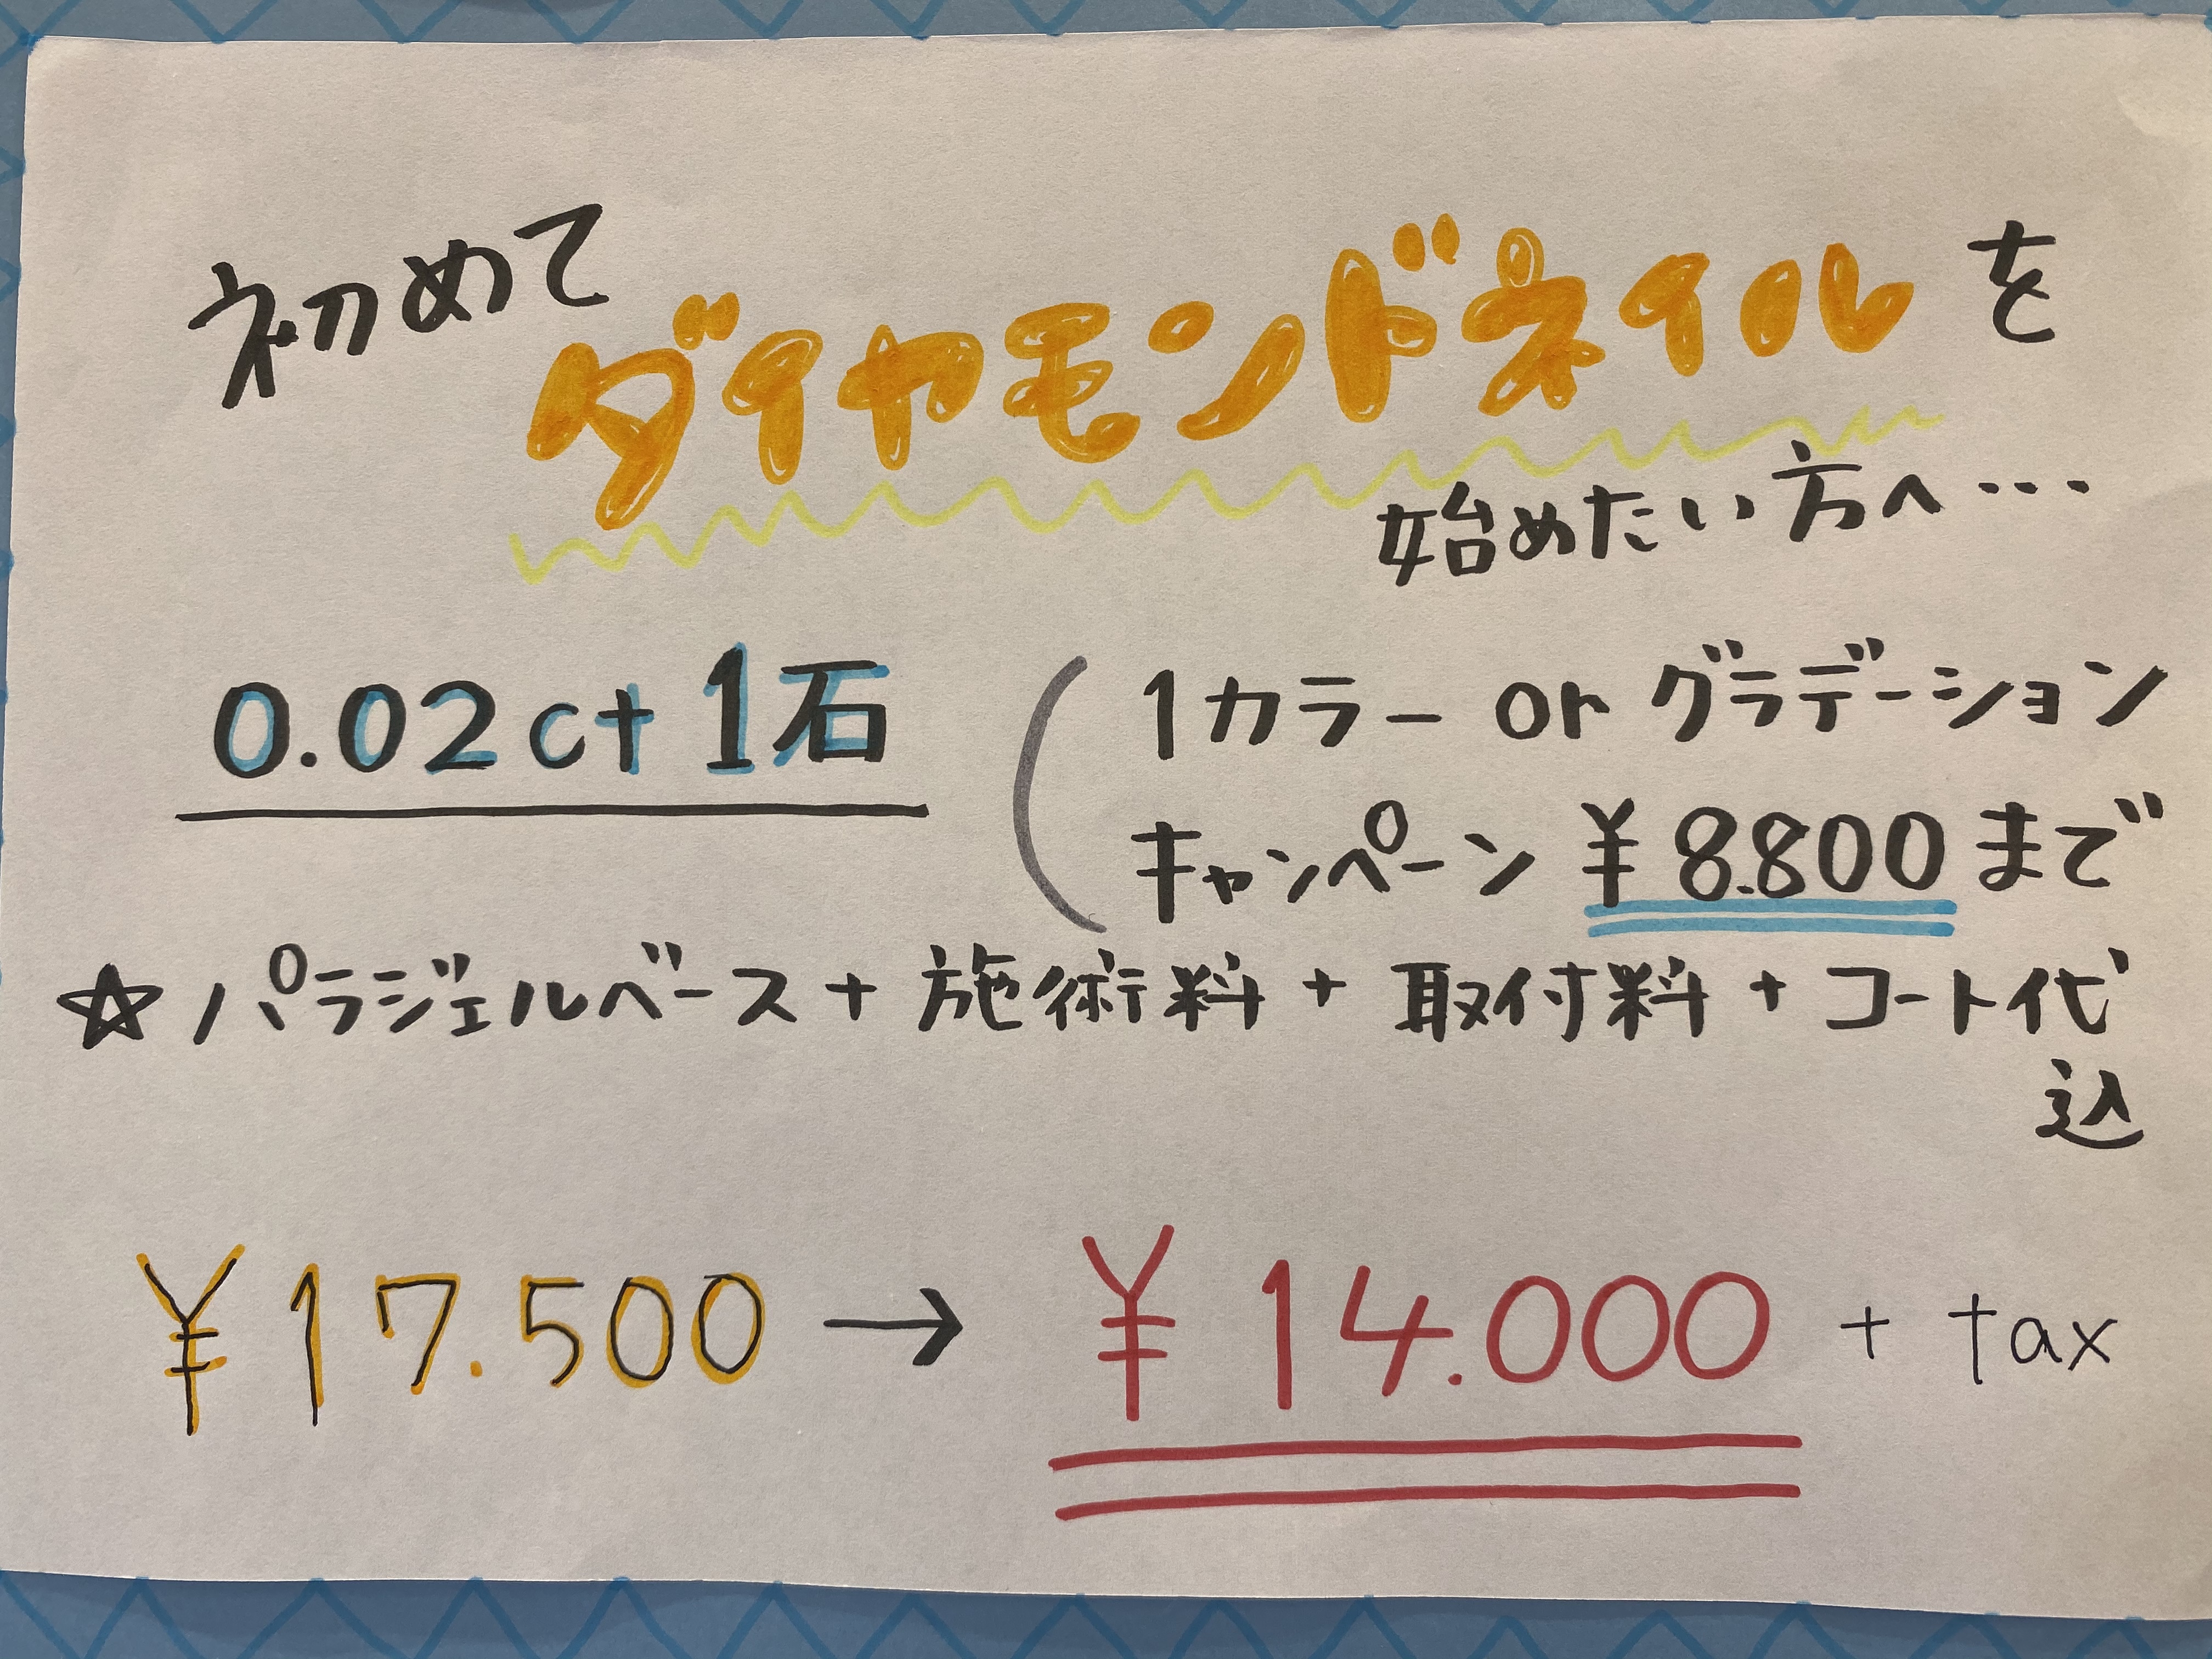 初めて
ダイヤモンドネイルを
始めたい方へ…
0.02ct 1石
(1カラー or グラデーション
キャンペーン ¥8.800まで
☆パラジェルベース + 施術料 + 取付料 + コート代
込
¥17.500 → ¥14.000 + tax